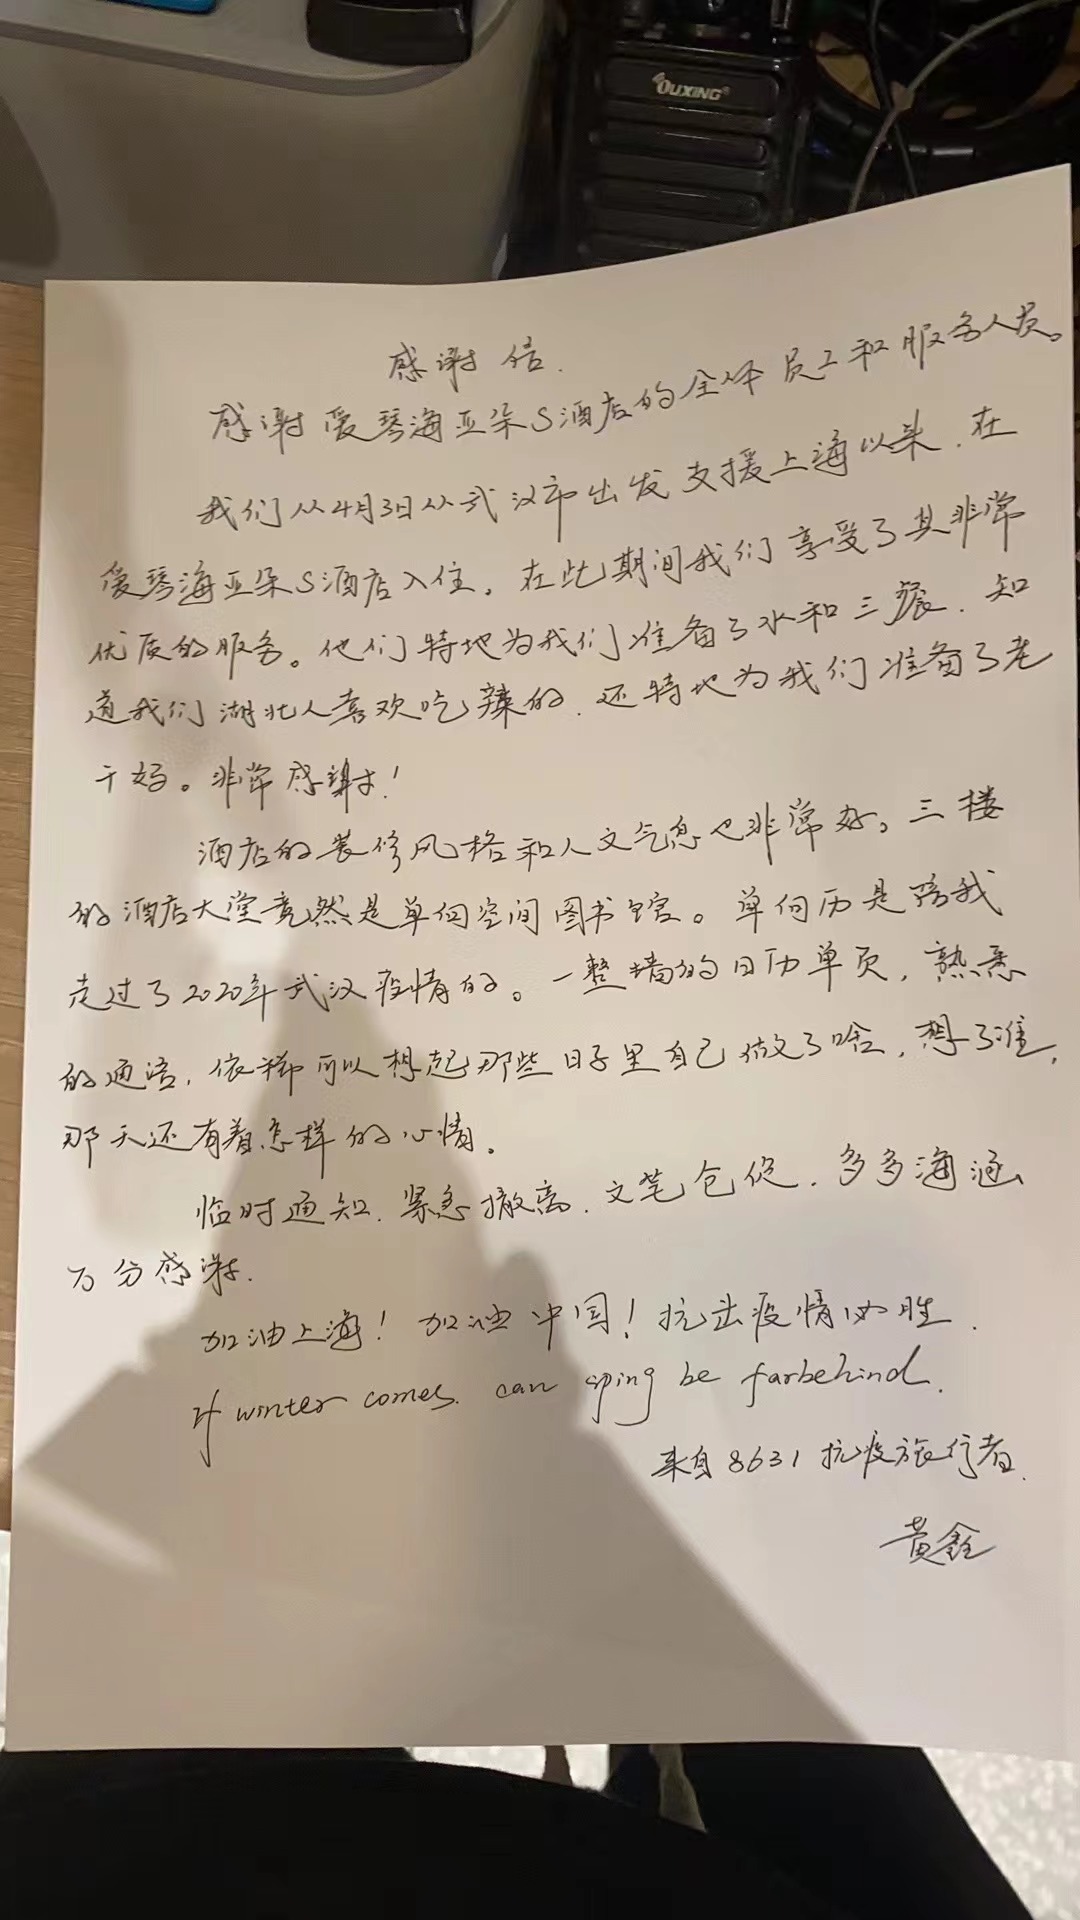 OUXING
感谢信.
感谢爱琴海亚朵S酒店的全体员工和服务人员。
我们从4月3日从武汉市出发支援上海以来,在
爱琴海亚朵S酒店入住。在此期间我们享受了其非常
优质的服务。他们特地为我们准备了水和三餐,知
道我们湖北人喜欢吃辣的,还特地为我们准备了老
干妈。非常感谢!
酒店的装修风格和人文气息也非常好。三楼
的酒店大堂竟然是单向空间图书馆。单向历是陪我
走过了2020年武汉疫情的。一整墙的日历单页,熟悉
的通语,依稀可以想起那些日子里自己做了啥,想了谁,
那天还有着怎样的心情。
临时通知,紧急撤离,文笔仓促,多多海涵
万分感谢.
加油上海!加油中国!抗击疫情必胜.
If winter comes. can sping be farbehind.
来自8631抗疫旅行者.
黄鑫